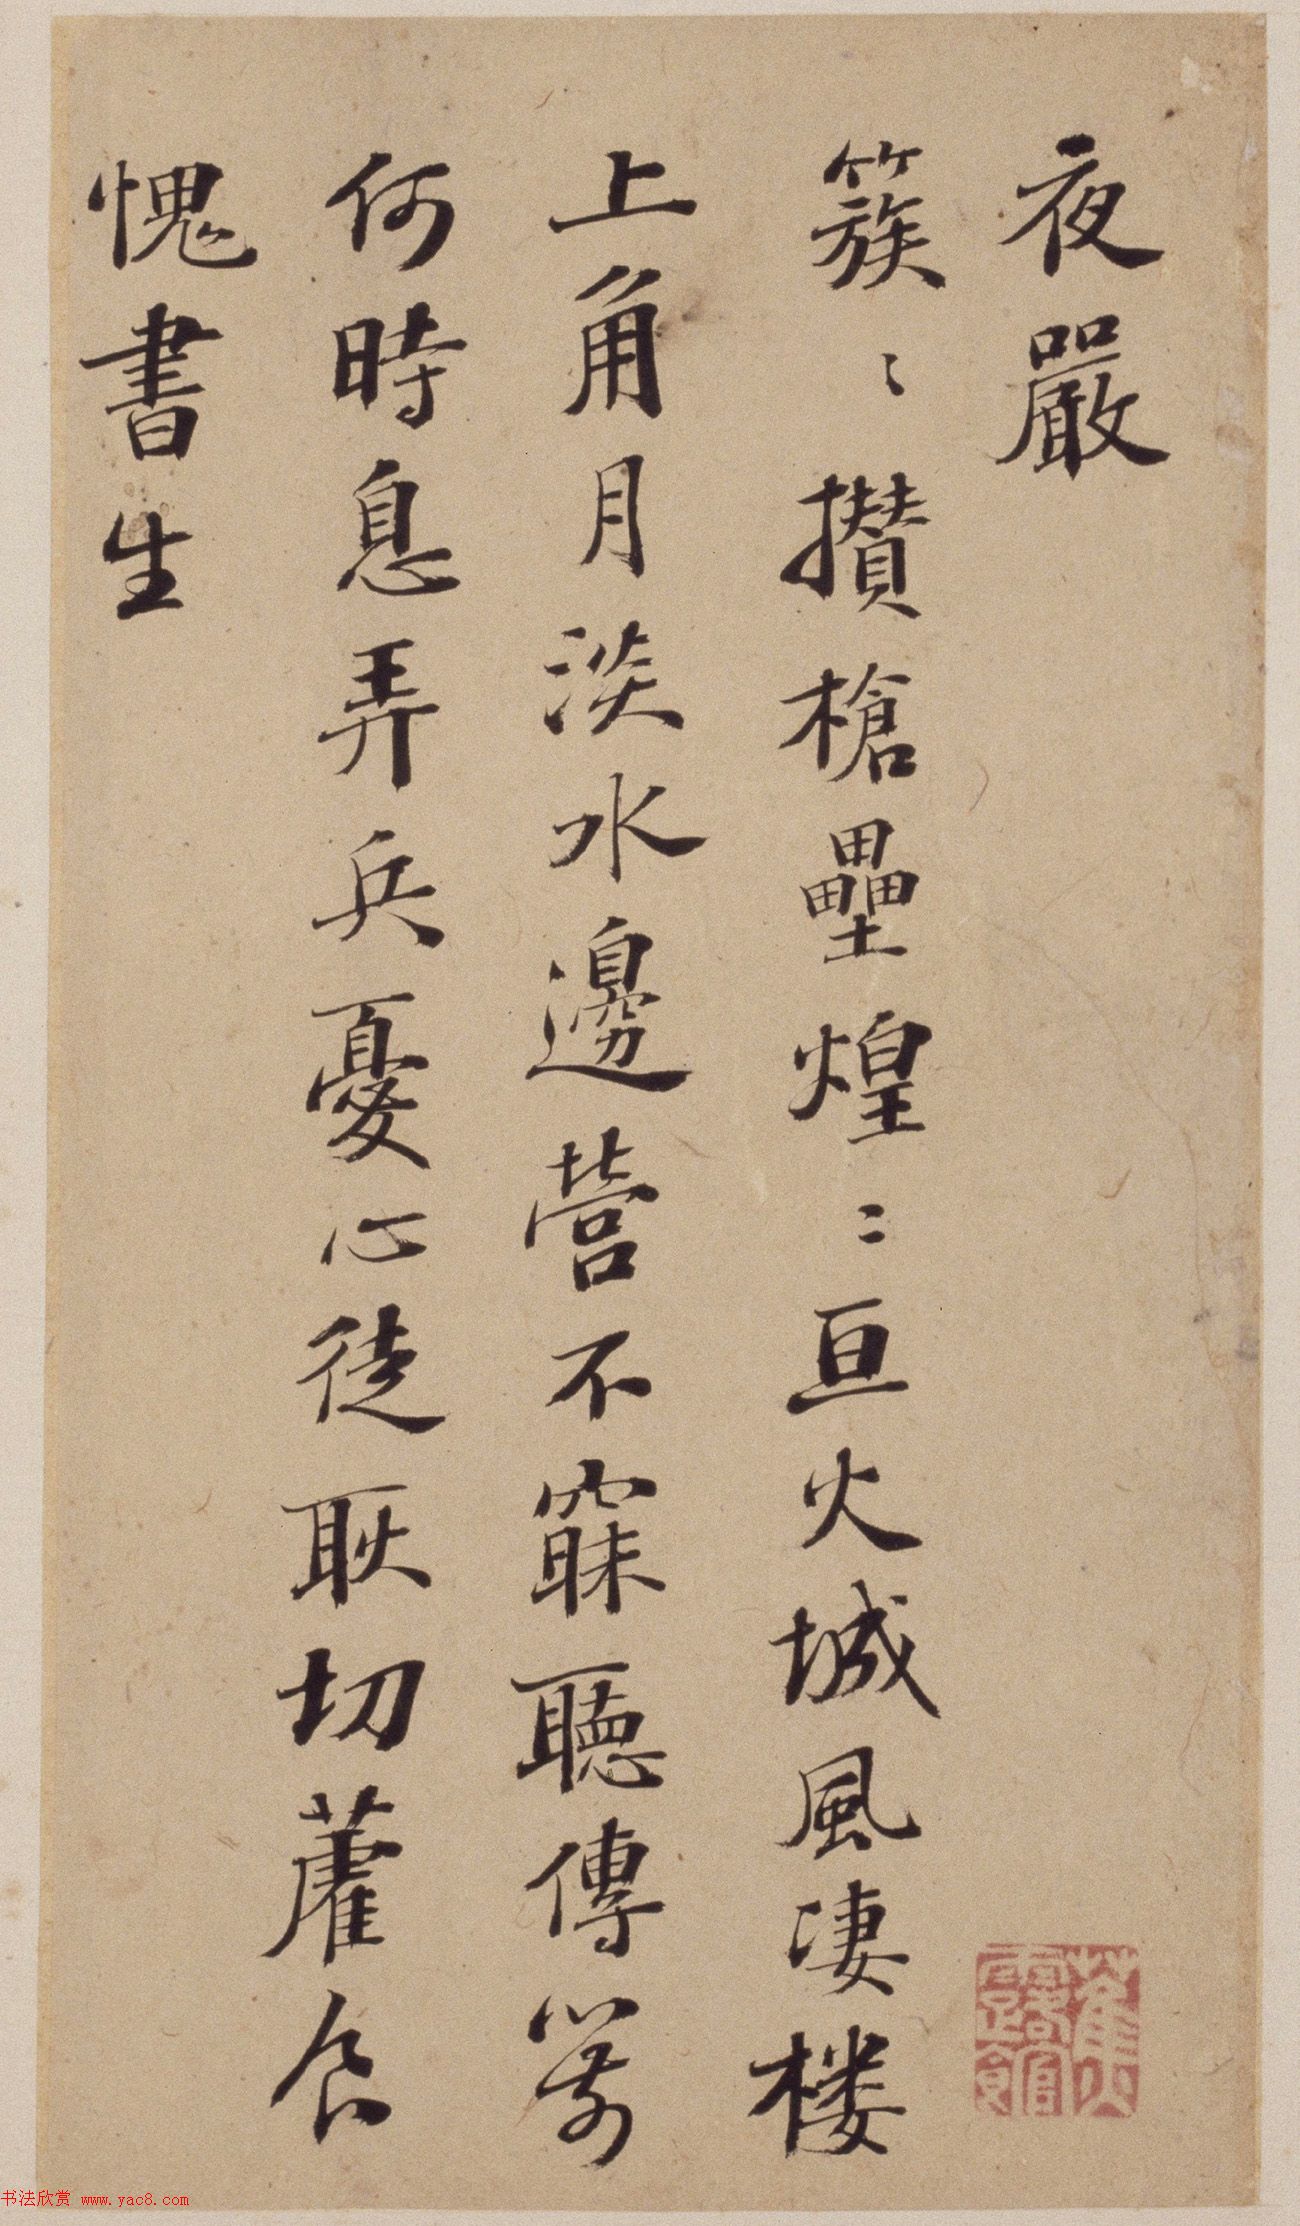 夜嚴
簇〻攢槍壘煌〻亘火城風淒楼
上角月淡水邊營不寐聽傳箭
何時息弄兵憂心徒耿切藿食
愧書生
书法欣赏 www.yac8.com